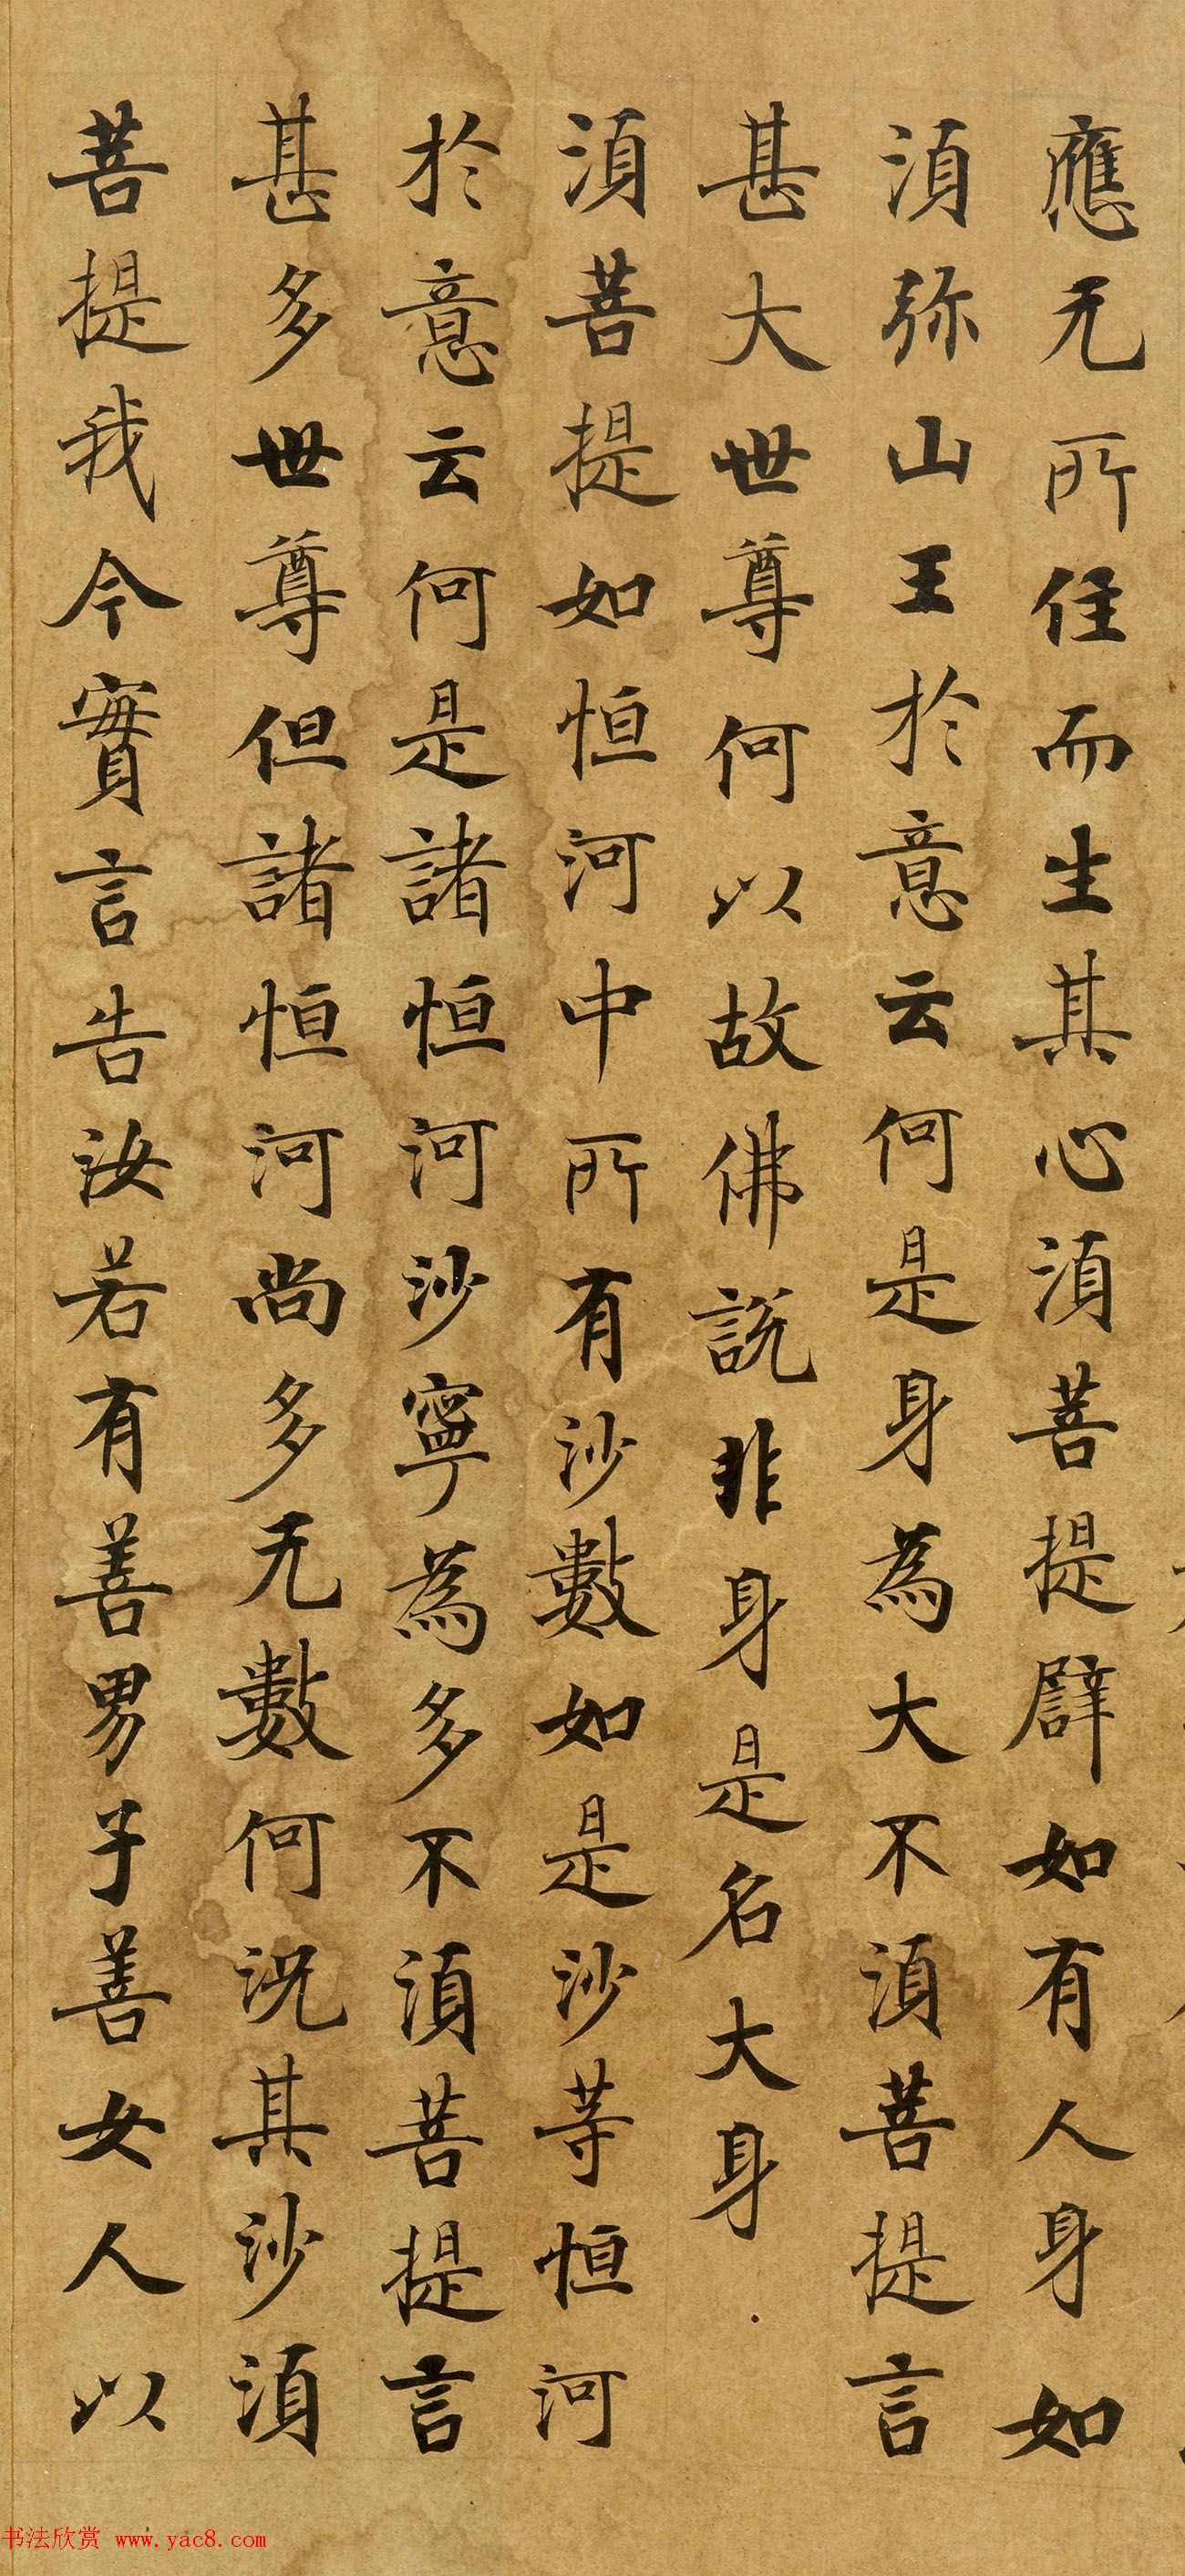 應无所住而生其心須菩提辟如有人身如
須弥山王於意云何是身為大不須菩提言
甚大世尊何以故佛說非身是名大身
須菩提如恒河中所有沙數如是沙等恒河
於意云何是諸恒河沙寧為多不須菩提言
甚多世尊但諸恒河尚多无數何況其沙須
菩提我今實言告汝若有善男子善女人以
书法欣赏 www.yac8.com